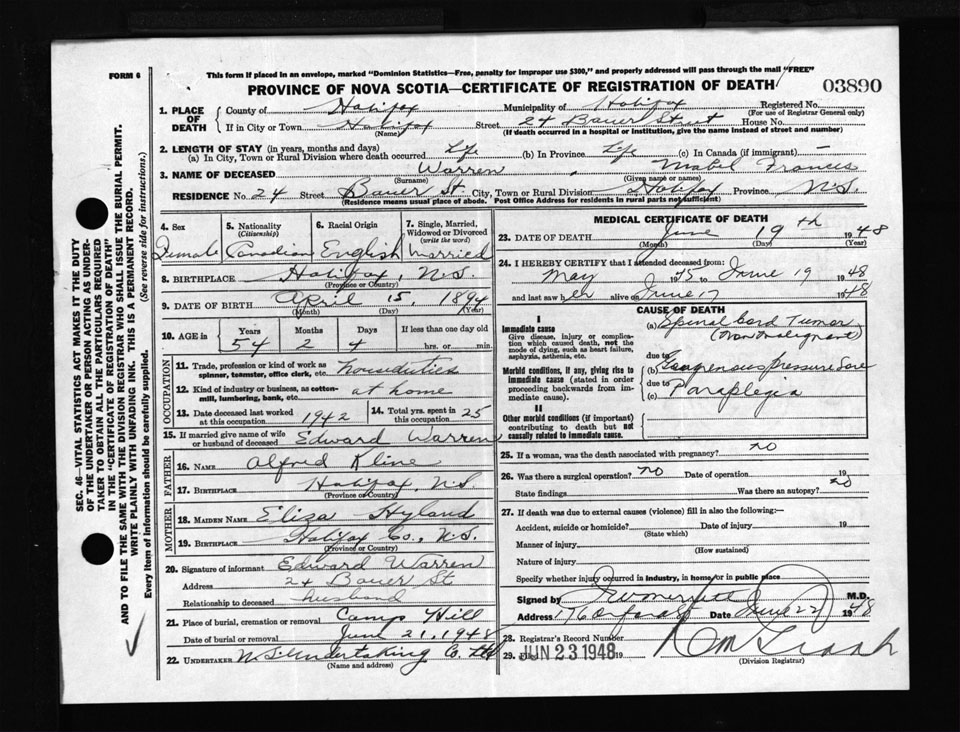 FORM 6
This form if placed in an envelope, marked "Dominion Statistics—Free, penalty for improper use $300," and properly addressed will pass through the mail "FREE"
PROVINCE OF NOVA SCOTIA—CERTIFICATE OF REGISTRATION OF DEATH
03890
1. PLACE OF DEATH
County of Halifax Municipality of Halifax Registered No.
(For use of Registrar General only)
If in City or Town Halifax Street 24 Bauer Street House No.
(Name) (If death occurred in a hospital or institution, give the name instead of street and number)
2. LENGTH OF STAY (in years, months and days)
(a) In City, Town or Rural Division where death occurred Life (b) In Province Life (c) In Canada (if immigrant) —
3. NAME OF DECEASED Warren, Mabel Frances
(Surname) (Given name or names)
RESIDENCE No. 24 Street Bauer St. City, Town or Rural Division Halifax Province N.S.
(Residence means usual place of abode. Post Office Address for residents in rural parts not sufficient)
4. Sex
Female
5. Nationality (Citizenship)
Canadian
6. Racial Origin
English
7. Single, Married, Widowed or Divorced (write the word)
Married
8. BIRTHPLACE Halifax, N.S.
(Province or Country)
9. DATE OF BIRTH April 15, 1894
(Month) (Day) (Year)
10. AGE in Years Months Days If less than one day old
54 2 4 hrs. or min.
OCCUPATION
11. Trade, profession or kind of work as spinner, teamster, office clerk, etc. housduties
12. Kind of industry or business, as cotton-mill, lumbering, bank, etc. at home
13. Date deceased last worked at this occupation 1942
14. Total yrs. spent in this occupation 25
15. If married give name of wife or husband of deceased Edward Warren
FATHER
16. NAME Alfred Kline
17. BIRTHPLACE Halifax, N.S.
(Province or Country)
MOTHER
18. MAIDEN NAME Eliza Hyland
19. BIRTHPLACE Halifax Co., N.S.
(Province or Country)
20. Signature of informant Edward Warren
Address 24 Bauer St
Relationship to deceased husband
21. Place of burial, cremation or removal Camp Hill
Date of burial or removal June 21, 1948
22. UNDERTAKER N.S. Undertaking Co. Ltd
(Name and address)
MEDICAL CERTIFICATE OF DEATH
23. DATE OF DEATH June 19th 1948
(Month) (Day) (Year)
24. I HEREBY CERTIFY that I attended deceased from:
May 1945 to June 19 1948
and last saw her alive on June 17 1948
CAUSE OF DEATH
I
Immediate cause
Give disease, injury or complication which caused death, not the mode of dying, such as heart failure, asphyxia, asthenia, etc.
(a) Spinal Cord Tumor
(Non Malignant)
due to
Morbid conditions, if any, giving rise to immediate cause (stated in order proceeding backwards from immediate).
(b) Gangrenous Pressure Sore
due to
(c) Paraplegia
II
Other morbid conditions (if important) contributing to death but not causally related to immediate cause.
25. If a woman, was the death associated with pregnancy? no
26. Was there a surgical operation? no Date of operation 19
State findings Was there an autopsy? no
27. If death was due to external causes (violence) fill in also the following:—
Accident, suicide or homicide? Date of injury 19
(State which)
Manner of injury
(How sustained)
Nature of injury
Specify whether injury occurred in industry, in home, or in public place
Signed by M.D.
Address 176 Date June 22 1948
28. Registrar's Record Number
29. JUN 23 1948 19
(Division Registrar)
SEC. 46—VITAL STATISTICS ACT MAKES IT THE DUTY
OF THE UNDERTAKER OR PERSON ACTING AS UNDER-
TAKER TO OBTAIN ALL THE PARTICULARS REQUIRED
IN THE "CERTIFICATE OF REGISTRATION OF DEATH"
AND TO FILE THE SAME WITH THE DIVISION REGISTRAR WHO SHALL ISSUE THE BURIAL PERMIT.
WRITE PLAINLY WITH UNFADING INK. THIS IS A PERMANENT RECORD.
Every item of information should be carefully supplied. (See reverse side for instructions.)